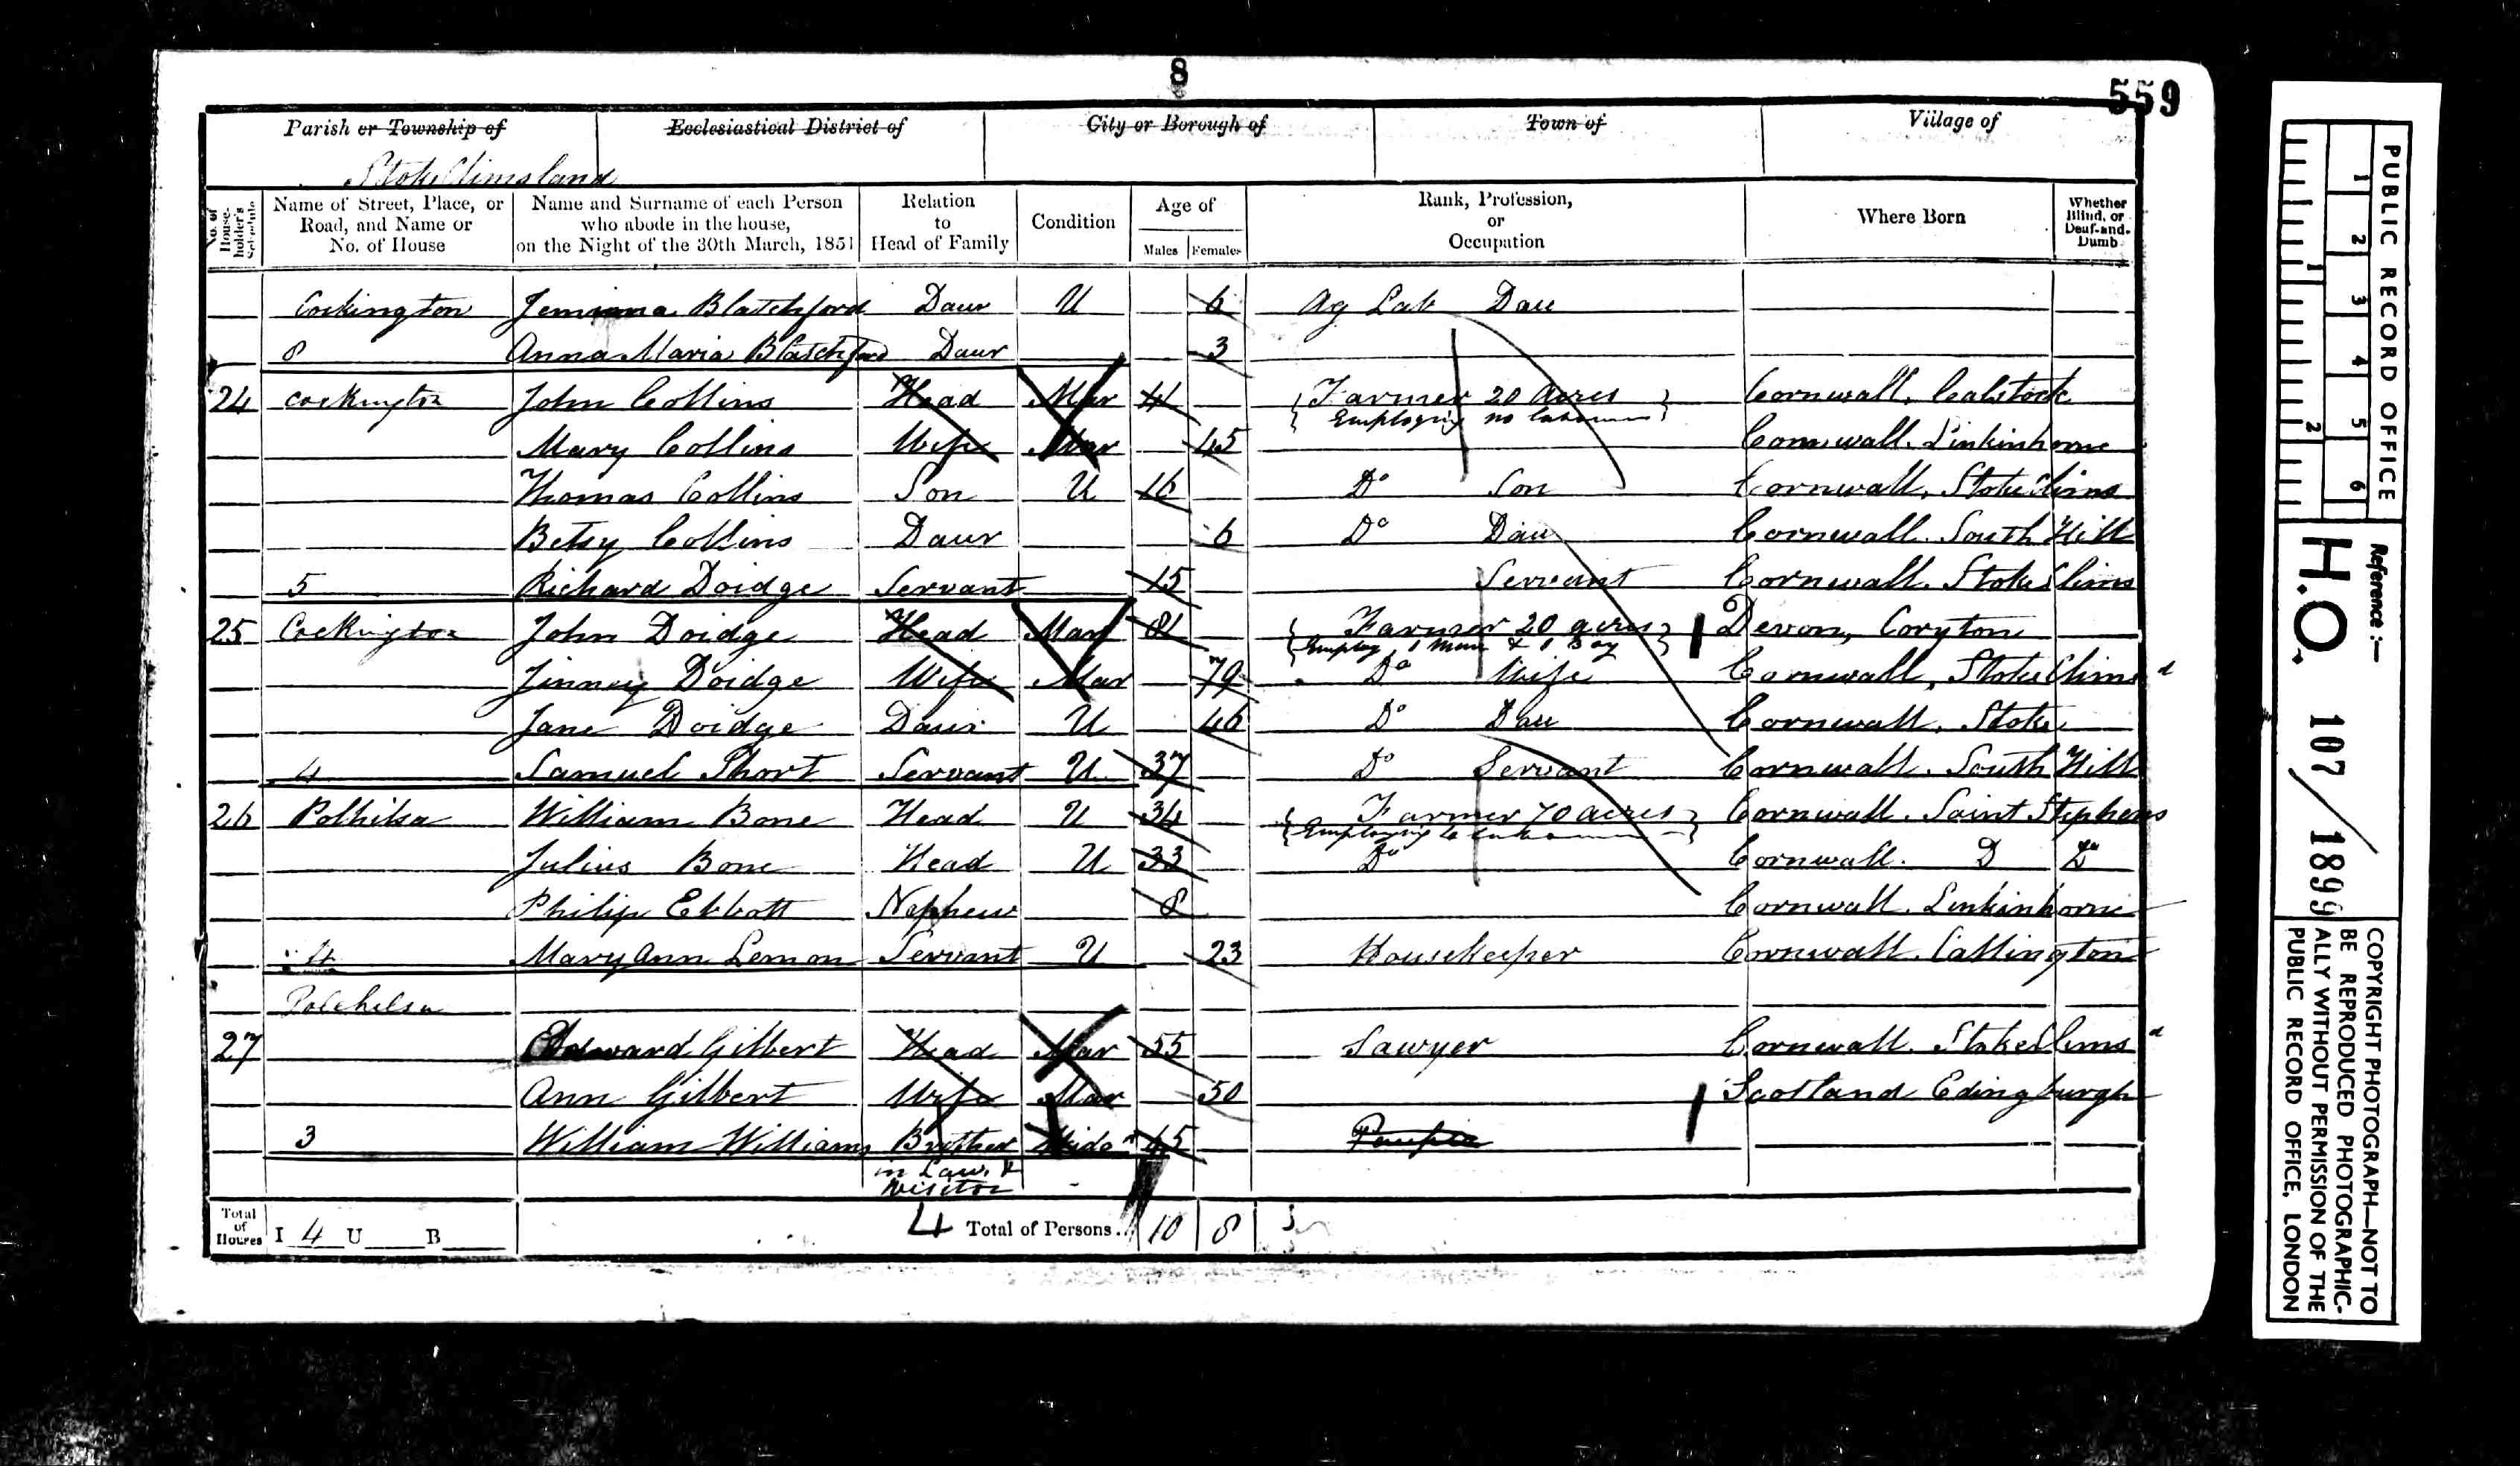 8
559
Parish or Township of Ecclesiastical District of City or Borough of Town of Village of
Stoke Climsland
No. of House-holder's Schedule
Name of Street, Place, or Road, and Name or No. of House
Name and Surname of each Person who abode in the house, on the Night of the 30th March, 1851
Relation to Head of Family
Condition
Age of
Males Females
Rank, Profession, or Occupation
Where Born
Whether Blind, or Deaf-and-Dumb
Cockington Jemima Blatchford Daur U 6 Ag Lab Dau
8 Anna Maria Blatchford Daur 3
24 Cockington John Collins Head Mar 41 Farmer 20 Acres Cornwall, Calstock
Employing no labourer
Mary Collins Wife Mar 45 Cornwall. Linkinhorne
Thomas Collins Son U 16 Do Son Cornwall, Stoke Clims
Betsy Collins Daur 6 Do Dau Cornwall. South Hill
5 Richard Doidge Servant 15 Servant Cornwall. Stoke Clims
25 Cockington John Doidge Head Mar 81 Farmer 20 acres Devon, Coryton
Employ 1 Man & 1 Boy
Jinney Doidge Wife Mar 79 Do Wife Cornwall, Stoke Clims d
Jane Doidge Daur U 46 Do Dau Cornwall. Stoke
4 Samuel Short Servant U 37 Do Servant Cornwall. South Hill
26 Polhilsa William Bone Head U 34 Farmer 70 acres Cornwall. Saint Stephens
Employing
Julius Bone Head U 33 Do Cornwall. D Do
Philip Ebbott Nephew 8 Cornwall. Linkinhorne
4 Mary Ann Lemon Servant U 23 Housekeeper Cornwall. Callington
Polehilsa
27 Edward Gilbert Head Mar 55 Sawyer Cornwall. Stoke Clims d
Ann Gilbert Wife Mar 50 Scotland Edingburgh
3 William Williams Brother Wido 45
in Law. &
Visitor
Total of Houses I 4 U B 4 Total of Persons.. 10 8
PUBLIC RECORD OFFICE
1 2 3 4 5 6
1 2
Reference :—
H.O. 107/1899
COPYRIGHT PHOTOGRAPH—NOT TO
BE REPRODUCED PHOTOGRAPHIC-
ALLY WITHOUT PERMISSION OF THE
PUBLIC RECORD OFFICE, LONDON